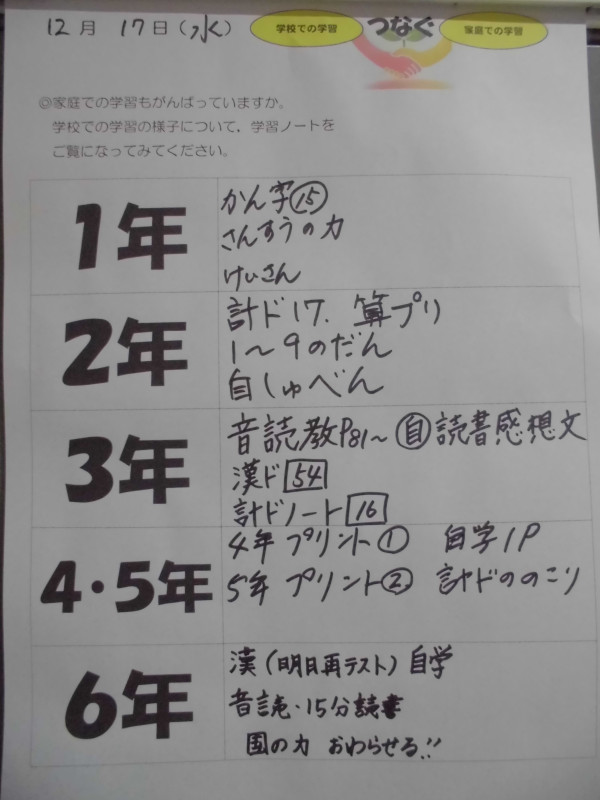 12月 17日(水)
学校での学習 つなぐ 家庭での学習
◎家庭での学習もがんばっていますか。
学校での学習の様子について、学習ノートを
ご覧になってみてください。
1年
かん字⑮
さんすうの力
けいさん
2年
計ド17. 算プリ
1〜9のだん
自しゅべん
3年
音読教P81〜 ㊀自 読書感想文
漢ド54
計ドノート16
4・5年
4年 プリント① 自学1P
5年 プリント② 計ドののこり
6年
漢(明日再テスト) 自学
音読・15分読書
国の力 おわらせる!!